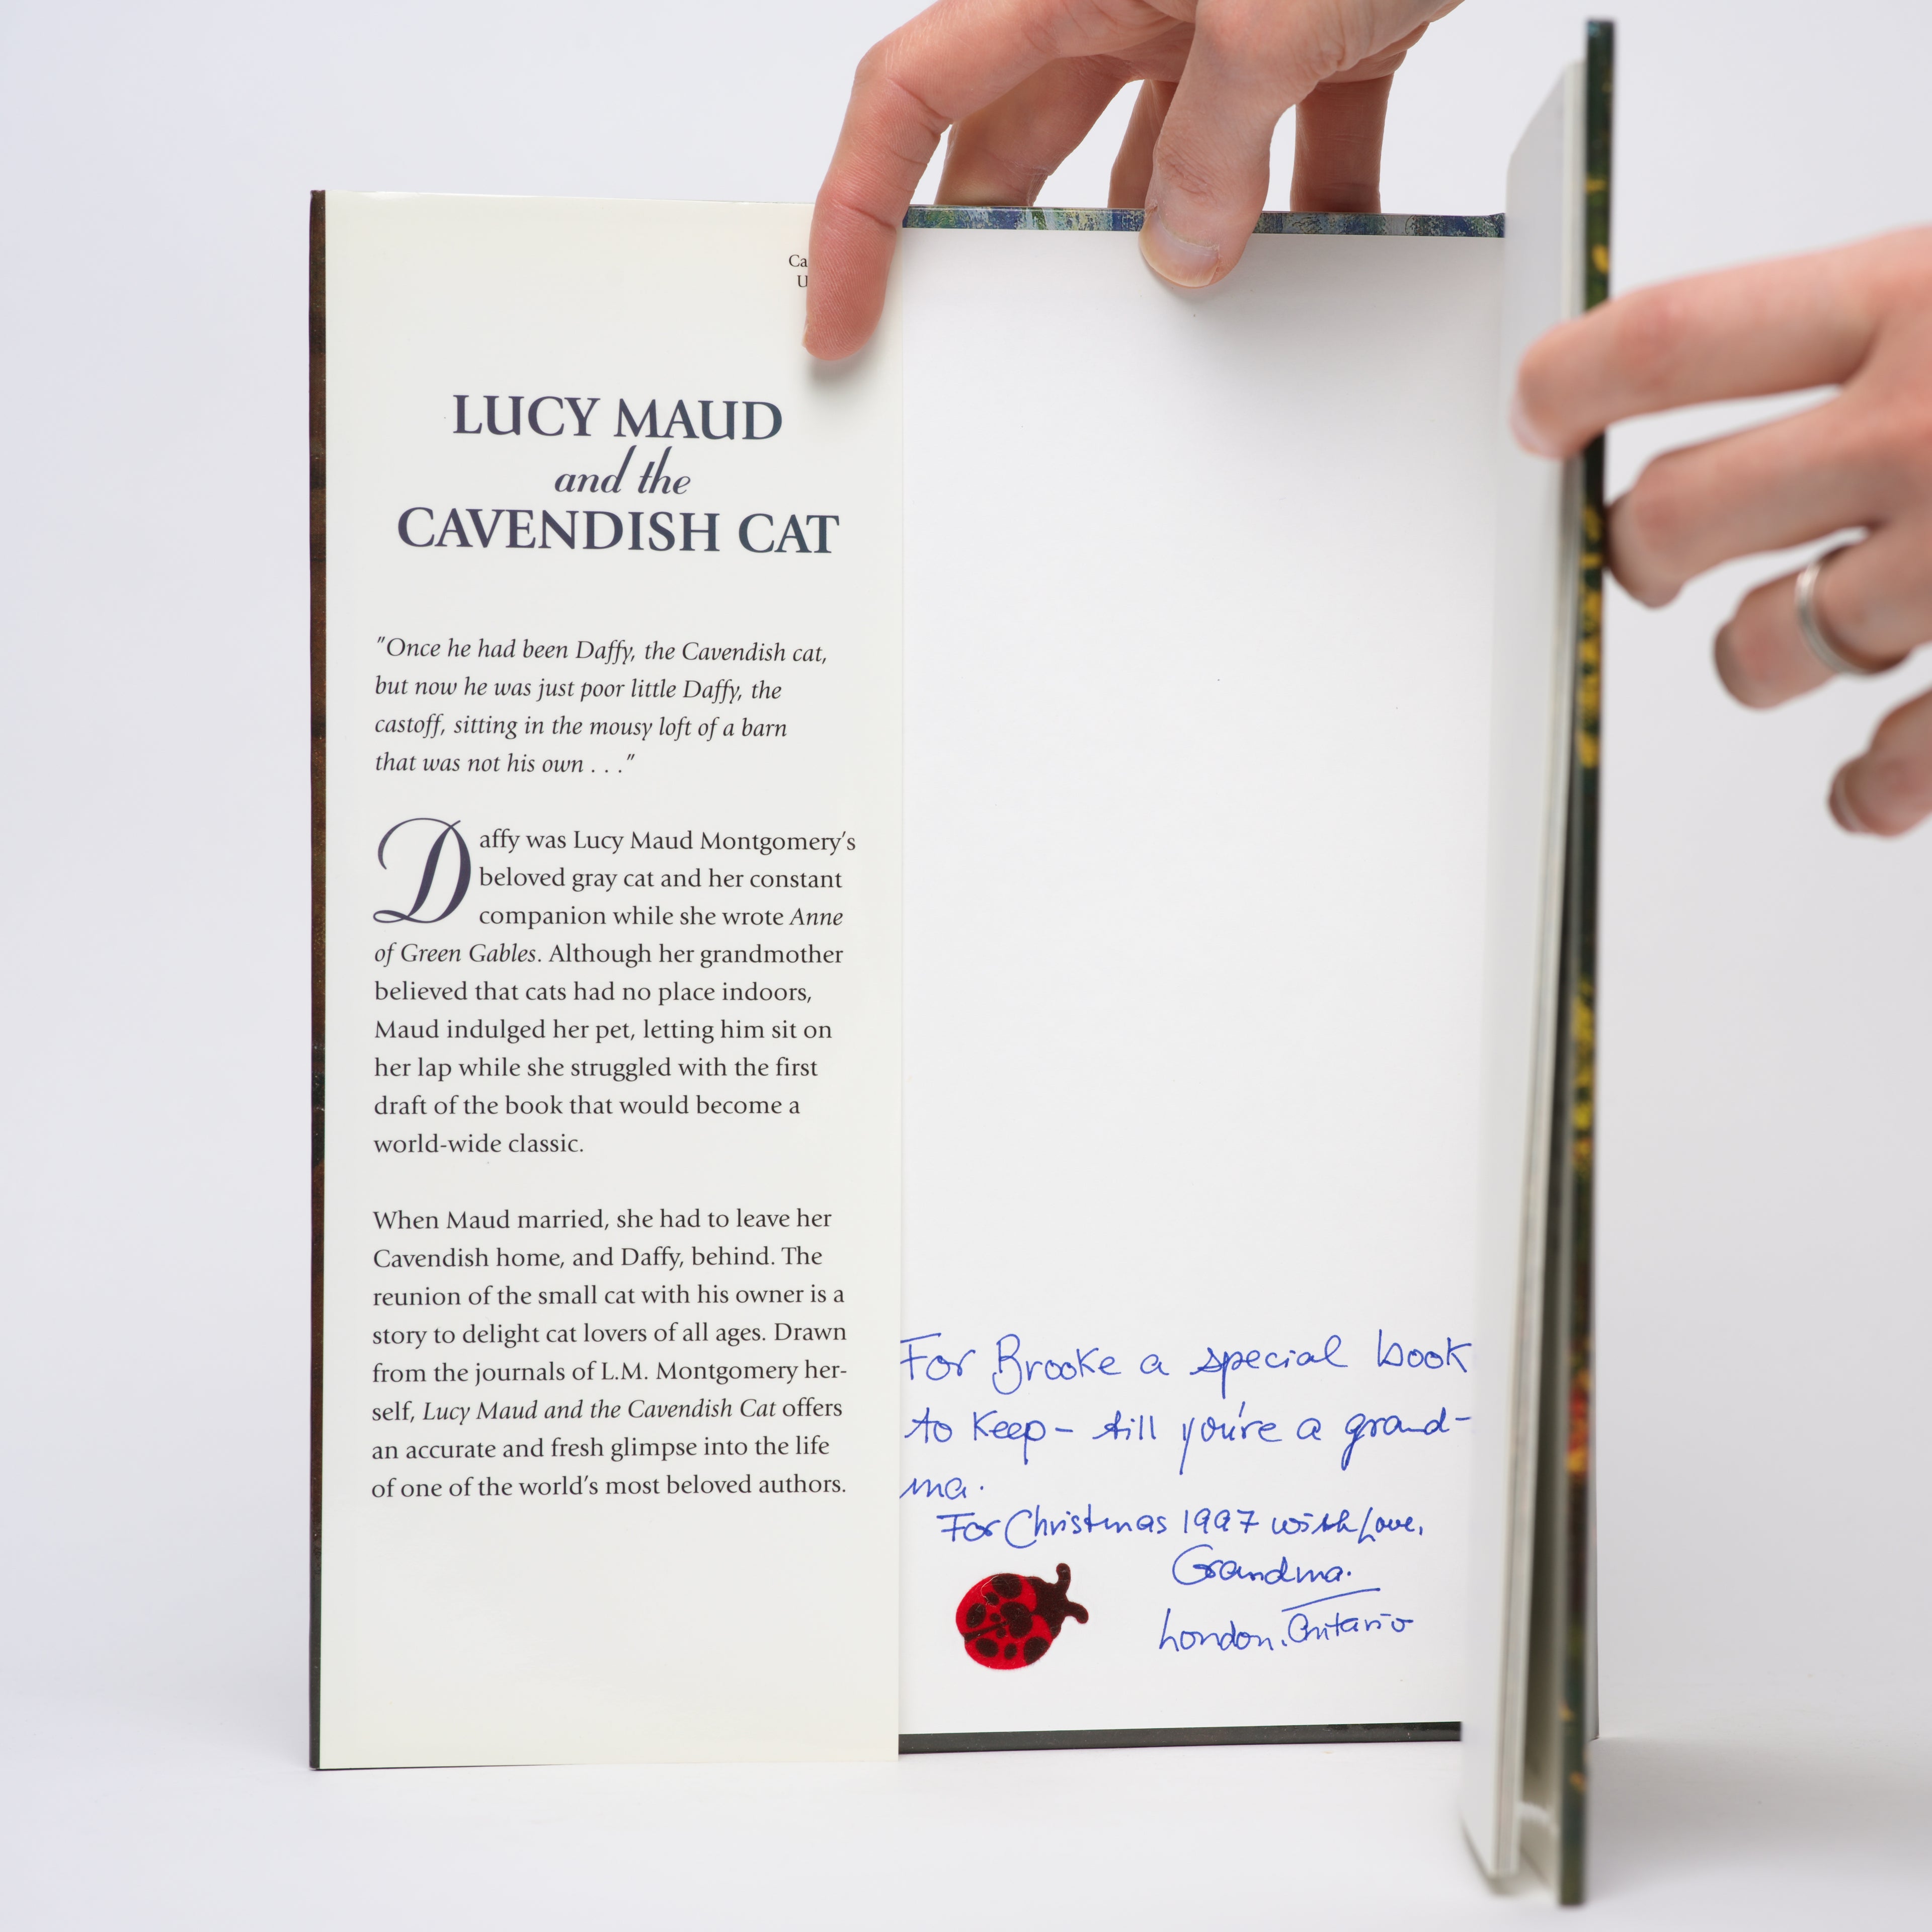 LUCY MAUD
and the
CAVENDISH CAT
"Once he had been Daffy, the Cavendish cat,
but now he was just poor little Daffy, the
castoff, sitting in the mousy loft of a barn
that was not his own . . ."
Daffy was Lucy Maud Montgomery's
beloved gray cat and her constant
companion while she wrote Anne
of Green Gables. Although her grandmother
believed that cats had no place indoors,
Maud indulged her pet, letting him sit on
her lap while she struggled with the first
draft of the book that would become a
world-wide classic.
When Maud married, she had to leave her
Cavendish home, and Daffy, behind. The
reunion of the small cat with his owner is a
story to delight cat lovers of all ages. Drawn
from the journals of L.M. Montgomery her-
self, Lucy Maud and the Cavendish Cat offers
an accurate and fresh glimpse into the life
of one of the world's most beloved authors.
For Brooke a special book
to keep – till you're a grand-
ma.
For Christmas 1997 with Love,
Grandma.
London, Ontario